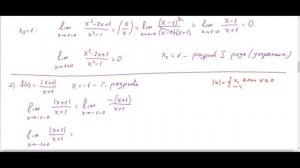 x₂=1: lim x→1-0 x²-2x+1 / x²-1 = (0/0) = lim x→1-0 (x-1)² / (x-1)(x+1) = lim x→1-0 x-1 / x+1 = 0
lim x→1+0 x²-2x+1 / x²-1 = 0 x₂=1 - разрыв I рода (устраним.)
2) f(x) = |x+1| / x+1 x=-1 - т. разрыва |x| = { x, если x≥0
lim x→-1-0 |x+1| / x+1 = lim x→-1-0 -(x+1) / x+1
lim |x+1| / x+1 =